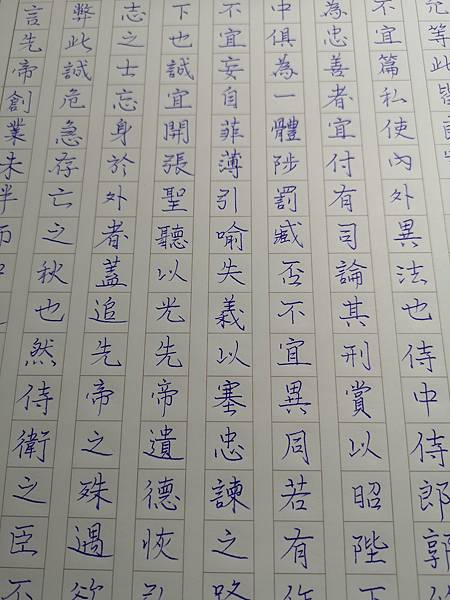 言先帝創業未半而中
弊此誠危急存亡之秋也然侍衛之臣不
志之士忘身於外者蓋追先帝之殊遇欲
下也誠宜開張聖聽以光先帝遺德恢弘
不宜妄自菲薄引喻失義以塞忠諫之路
中俱為一體陟罰臧否不宜異同若有作
為忠善者宜付有司論其刑賞以昭陛下
不宜篇私使內外異法也侍中侍郎郭
允等此皆良